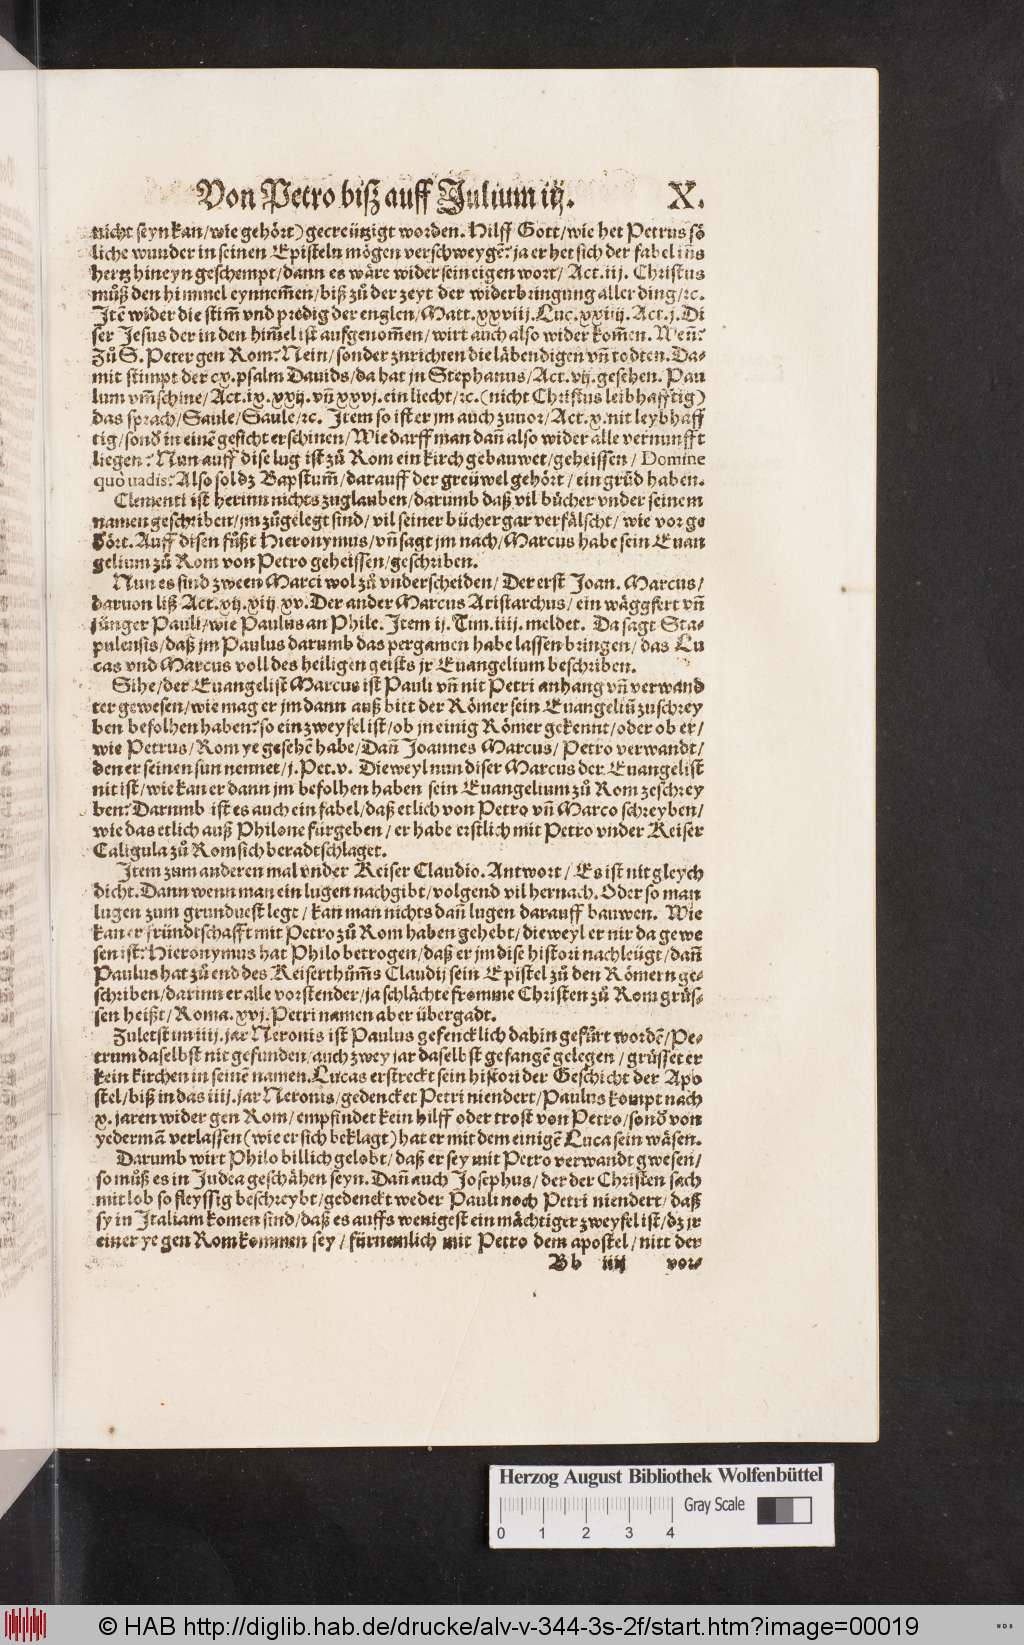 Von Petro biß auff Julium iij. X.
nicht seyn kan/wie gehört) gecreützigt worden. Hilff Gott/wie het Petrus sö
liche wunder in seinen Episteln mögen verschweygē: ja er het sich der fabel iňs
hertz hineyn geschempt/dann es wäre wider sein eigen wort/ Act. iij. Christus
můß den himmel eynnem̄en/biß zů der zeyt der widerbringung aller ding/ꝛc.
Jtē wider die stim̄ vnd predig der englen/Matt. xxviij. Luc. xxiiij. Act. j. Di
ser Jesus der in den him̄el ist aufgenom̄en/wirt auch also wider kom̄en. Wen̄:
Zů S. Peter gen Rom: Nein/sonder zurichten die läbendigen vn̄ todten. Da⸗
mit stimpt der cx. psalm Dauids/da hat jn Stephanus/Act. vij. gesehen. Pau
lum vm̄schine/Act. ix. xxij. vn̄ xxvj. ein liecht/ꝛc. (nicht Christus leibhafftig)
das sprach/Saule/Saule/ꝛc. Jtem so ist er jm auch zuuor/Act. x. nit leybhaff
tig/sond̄ in einē gesicht erschinen/Wie darff man dan̄ also wider alle vernunfft
liegen: Nun auff dise lug ist zů Rom ein kirch gebauwet/geheissen/ Domine
quò uadis: Also sol dz Bapstum̄/darauff der greüwel gehört/ein grūd haben.
Clementi ist herinn nichts zuglauben/darumb daß vil bücher vnder seinem
namen geschriben/jm zůgelegt sind/vil seiner bücher gar verfälscht/wie vor ge
hört. Auff disen fůßt Hieronymus/vn̄ sagt jm nach/Marcus habe sein Euan
gelium zů Rom von Petro geheissen/geschriben.
Nun es sind zween Marci wol zů vnderscheiden/ Der erst Joan. Marcus/
daruon liß Act. xij. xiij. xv. Der ander Marcus Aristarchus/ ein wäggfert vn̄
jünger Pauli/wie Paulus an Phile. Jtem ij. Tim. iiij. meldet. Da sagt Sta⸗
pulensis/daß jm Paulus darumb das pergamen habe lassen bringen/das Lu
cas vnd Marcus voll des heiligen geists jr Euangelium beschriben.
Sihe/der Euangelist Marcus ist Pauli vn̄ nit Petri anhang vn̄ verwand
ter gewesen/wie mag er jm dann auß bitt der Römer sein Euangeliū zuschrey
ben befolhen haben: so ein zweyfel ist/ob jn einig Römer gekennt/oder ob er/
wie Petrus/Rom ye gesehē habe/Dan̄ Joannes Marcus/ Petro verwandt/
den er seinen sun nennet/j. Pet. v. Dieweyl nun diser Marcus der Euangelist
nit ist/wie kan er dann jm befolhen haben sein Euangelium zů Rom zeschrey
ben: Darumb ist es auch ein fabel/daß etlich von Petro vn̄ Marco schreyben/
wie das etlich auß Philone fürgeben/er habe erstlich mit Petro vnder Keiser
Caligula zů Rom sich beradtschlaget.
Jtem zum anderen mal vnder Keiser Claudio. Antwort/ Es ist nit gleych
dicht. Dann wenn man ein lugen nachgibt/volgend vil hernach. Oder so man
lugen zum grunduest legt/ kan man nichts dan̄ lugen darauff bauwen. Wie
kan er fründtschafft mit Petro zů Rom haben gehebt/dieweyl er nir da gewe
sen ist: Hieronymus hat Philo betrogen/daß er jm dise histori nachleügt/dan̄
Paulus hat zů end des Keiserthům̄s Claudij sein Epistel zů den Römern ge⸗
schriben/darinn er alle vorstender/ja schlächte fromme Christen zů Rom grüs⸗
sen heißt/Roma. xvj. Petri namen aber übergadt.
Zuletst im iiij. jar Neronis ist Paulus gefencklich dahin gefürt wordē/Pe⸗
trum daselbst nit gefunden/auch zwey jar daselbst gefangē gelegen/grüsset er
kein kirchen in seinē namen. Lucas erstreckt sein histori der Geschicht der Apo
stel/biß in das iiij. jar Neronis/gedencket Petri niendert/Paulus kompt nach
x. jaren wider gen Rom/empfindet kein hilff oder trost von Petro/sond̄ von
yedermā verlassen (wie er sich beklagt) hat er mit dem einigē Luca sein wäsen.
Darumb wirt Philo billich gelobt/daß er sey mit Petro verwandt gwesen/
so můß es in Judea geschähen seyn. Dan̄ auch Josephus/der der Christen sach
mit lob so fleyssig beschreybt/gedenckt weder Pauli noch Petri niendert/daß
sy in Italiam komen sind/daß es auffs wenigest ein mächtiger zweyfel ist/dz jr
einer ye gen Rom kommen sey/fürnemlich mit Petro dem apostel/nitt der
Bb iiij vor⸗
Herzog August Bibliothek Wolfenbüttel
Gray Scale
0 1 2 3 4
© HAB http://diglib.hab.de/drucke/alv-v-344-3s-2f/start.htm?image=00019